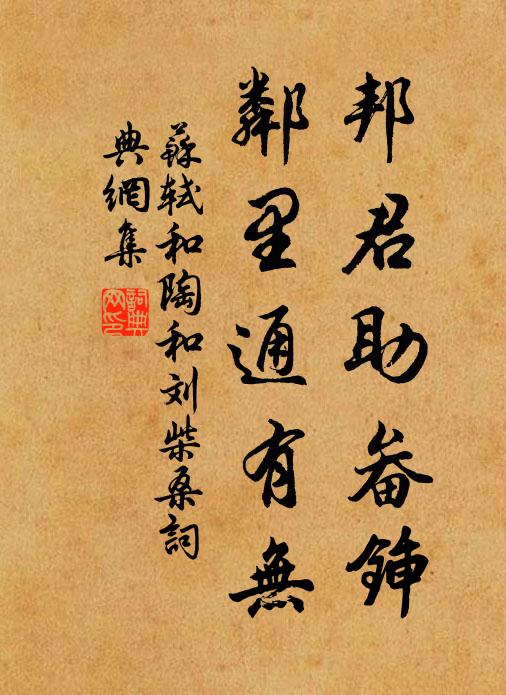 邦君助畚鍤
鄰里通有無
蘇軾和陶和刘柴桑詞
典網集
詞典
网印